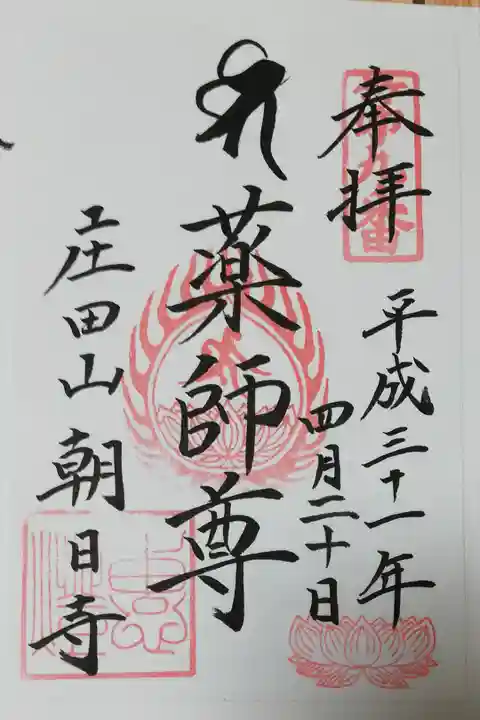 奉拝
第九番
平成三十一年
四月二十日
薬師尊
庄田山朝日寺